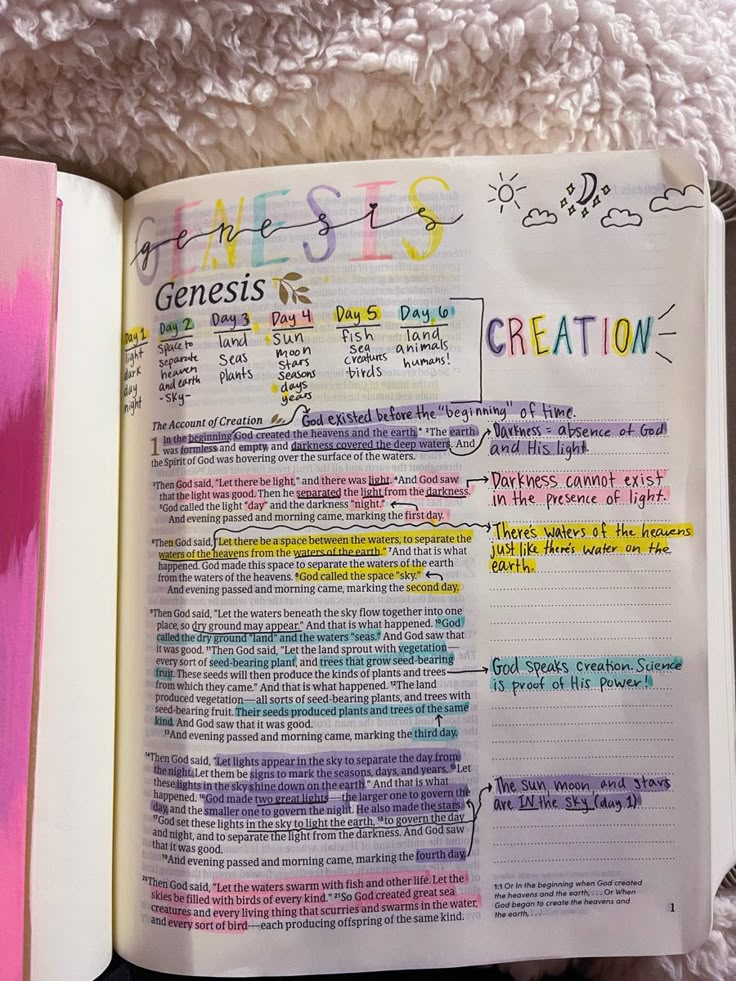 GENESIS
genesis
Genesis
Day 1
light
dark
day
night
Day 2
space to
separate
heaven
and earth
-sky-
Day 3
land
seas
plants
Day 4
sun
moon
stars
seasons
days
years
Day 5
fish
sea
creatures
birds
Day 6
land
animals
humans!
CREATION
The Account of Creation
God existed before the "beginning" of time.
1 In the beginning God created the heavens and the earth. 2The earth
was formless and empty, and darkness covered the deep waters. And
the Spirit of God was hovering over the surface of the waters.
Darkness = absence of God
and His light.
3Then God said, "Let there be light," and there was light. 4And God saw
that the light was good. Then he separated the light from the darkness.
5God called the light "day" and the darkness "night."
And evening passed and morning came, marking the first day.
Darkness cannot exist
in the presence of light.
6Then God said, "Let there be a space between the waters, to separate the
waters of the heavens from the waters of the earth." 7And that is what
happened. God made this space to separate the waters of the earth
from the waters of the heavens. 8God called the space "sky."
And evening passed and morning came, marking the second day.
There's waters of the heavens
just like there's water on the
earth.
9Then God said, "Let the waters beneath the sky flow together into one
place, so dry ground may appear." And that is what happened. 10God
called the dry ground "land" and the waters "seas." And God saw that
it was good. 11Then God said, "Let the land sprout with vegetation—
every sort of seed-bearing plant, and trees that grow seed-bearing
fruit. These seeds will then produce the kinds of plants and trees
from which they came." And that is what happened. 12The land
produced vegetation—all sorts of seed-bearing plants, and trees with
seed-bearing fruit. Their seeds produced plants and trees of the same
kind. And God saw that it was good.
13And evening passed and morning came, marking the third day.
God speaks creation. Science
is proof of His power!
14Then God said, "Let lights appear in the sky to separate the day from
the night. Let them be signs to mark the seasons, days, and years. 15Let
these lights in the sky shine down on the earth." And that is what
happened. 16God made two great lights—the larger one to govern the
day, and the smaller one to govern the night. He also made the stars.
17God set these lights in the sky to light the earth, 18to govern the day
and night, and to separate the light from the darkness. And God saw
that it was good.
19And evening passed and morning came, marking the fourth day.
The sun, moon, and stars
are IN the sky (day 1)
20Then God said, "Let the waters swarm with fish and other life. Let the
skies be filled with birds of every kind." 21So God created great sea
creatures and every living thing that scurries and swarms in the water,
and every sort of bird—each producing offspring of the same kind.
1:1 Or In the beginning when God created
the heavens and the earth, . . . Or When
God began to create the heavens and
the earth, . . .
1